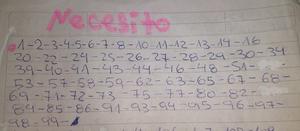 Necesito
1-2-3-4-5-6-7-8-10-11-12-13-14-16
20-22-24-25-26-27-28-29-30-34
39-40-41-43-44-46-48-51-
53-57-58-59-62-63-65-67-68-
69-71-72-73-75-77-80-82-
84-85-86-91-93-94-95-96-97-
98-99-